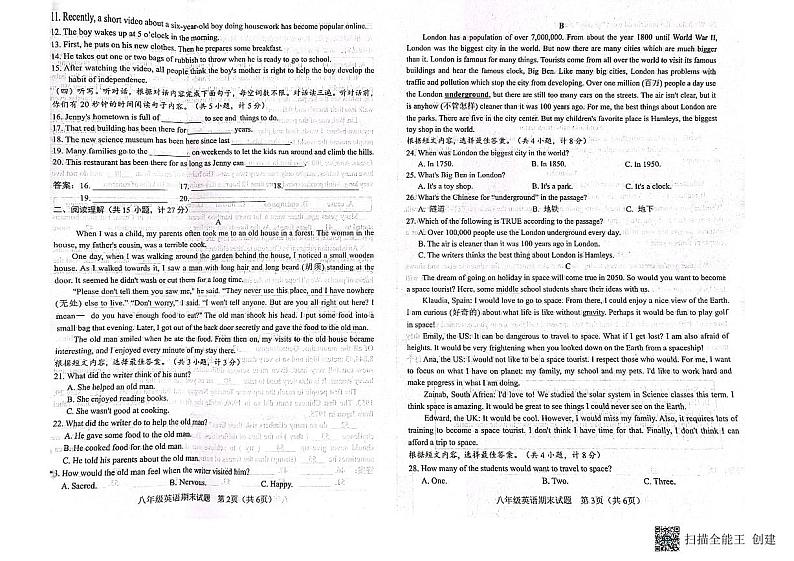 11. Recently, a short video about a six-year-old boy doing housework has become popular online.
12. The boy wakes up at 5 o'clock in the morning.
13. First, he puts on his new clothes. Then he prepares some breakfast.
14. He takes out one or two bags of rubbish to throw when he is ready to go to school.
15. After watching the video, all people think the boy's mother is right to help the boy develop the
habit of independence.
(四) 听写。听对话。根据对话内容完成下面句子,每空词数不限。对话读三遍。听对话前,
你们有 20 秒钟的时间阅读句子内容。(共 5 小题, 计 5 分)
16. Jenny's hometown is full of ________ to see and things to do.
17. That red building has been there for ________ years.
18. The new science museum has been here since last ________.
19. Many families go to the ________ on weekends to let the kids run around and climb the hills.
20. This restaurant has been there for as long as Jenny can ________.
答案: 16. ________ 17. ________ 18. ________
19. ________ 20. ________
二、阅读理解 (共 15 小题, 计 27 分)
A
When I was a child, my parents often took me to an old house in a forest. The woman in the
house, my father's cousin, was a terrible cook.
One day, when I was walking around the garden behind the house, I noticed a small wooden
house. As I walked towards it, I saw a man with long hair and long beard (胡须) standing at the
door. It seemed he didn't wash or cut them for a long time.
"Please don't tell them you saw me," he said. "They never use this place, and I have nowhere
(无处) else to live." "Don't worry," I said. "I won't tell anyone. But are you all right out here? I
mean— do you have enough food to eat?" The old man shook his head. I put some food into a
small bag that evening. Later, I got out of the back door secretly and gave the food to the old man.
The old man smiled when he ate the food. From then on, my visits to the old house became
interesting, and I enjoyed every minute of my stay there.
根据短文内容, 选择最佳答案。(共 3 小题, 计 3 分)
21. What did the writer think of his aunt?
A. She helped an old man.
B. She enjoyed reading books.
C. She wasn't good at cooking.
22. What did the writer do to help the old man?
A. He gave some food to the old man.
B. He cooked food for the old man.
C. He told his parents about the old man.
3. How would the old man feel when the writer visited him?
A. Sacred. B. Nervous. C. Happy.
八年级英语期末试题 第 2页 (共 6页)
B
London has a population of over 7,000,000. From about the year 1800 until World War II,
London was the biggest city in the world. But now there are many cities which are much bigger
than it. London is famous for many things. Tourists come from all over the world to visit its famous
buildings and hear the famous clock, Big Ben. Like many big cities, London has problems with
traffic and pollution which stop the city from developing. Over one million (百万) people a day use
the London underground, but there are still too many cars on the streets. The air isn't clear, but it
is anyhow (不管怎样) cleaner than it was 100 years ago. For me, the best things about London are
the parks. There are five in the city center. But my children's favorite place is Hamleys, the biggest
toy shop in the world.
根据短文内容, 选择最佳答案。(共 4 小题, 计 8 分)
24. When was London the biggest city in the world?
A. In 1750. B. In 1850. C. In 1950.
25. What's Big Ben in London?
A. It's a toy shop. B. It's a park. C. It's a clock.
26. What's the Chinese for "underground" in the passage?
A. 隧道 B. 地铁 C. 地下
27. Which of the following is TRUE according to the passage?
A. Over 100,000 people use the London underground every day.
B. The air is cleaner than it was 100 years ago in London.
C. The writer thinks the best thing about London is Hamleys.
C
The dream of going on holiday in space will come true in 2050. So would you want to become
a space tourist? Here, some middle school students share their ideas with us.
Klaudia, Spain: I would love to go to space. From there, I could enjoy a nice view of the Earth.
I am curious (好奇的) about what life is like without gravity. Perhaps it would be fun to play golf
in space!
Emily, the US: It can be dangerous to travel to space. What if I get lost? I am also afraid of
heights. It would be very frightening when you looked down on the Earth from a spaceship!
Ana, the US: I would not like to be a space tourist. I respect those who would. For me, I want
to focus on what I have on planet: my family, my school and my pets. I'd like to work hard and
make progress in what I am doing.
Zainab, South Africa: I'd love to! We studied the solar system in Science classes this term. I
think space is amazing. It would be great to see things I could never see on the Earth.
Edward, the UK: It would be cool. However, I would miss my family. Also, it requires lots of
training to become a space tourist. I don't think I have time for that. Finally, I don't think I can
afford a trip to space.
根据短文内容, 选择最佳答案。(共 4 小题, 计 8 分)
28. How many of the students would want to travel to space?
A. One. B. Two. C. Three.
八年级英语期末试题 第 3页 (共 6页)
扫描全能王 创建